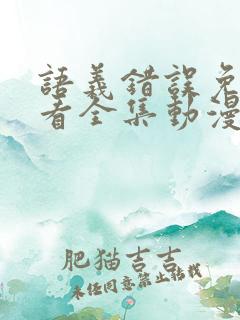 語義錯誤免
看全集動漫
肥猫吉吉
未经同意禁止转载